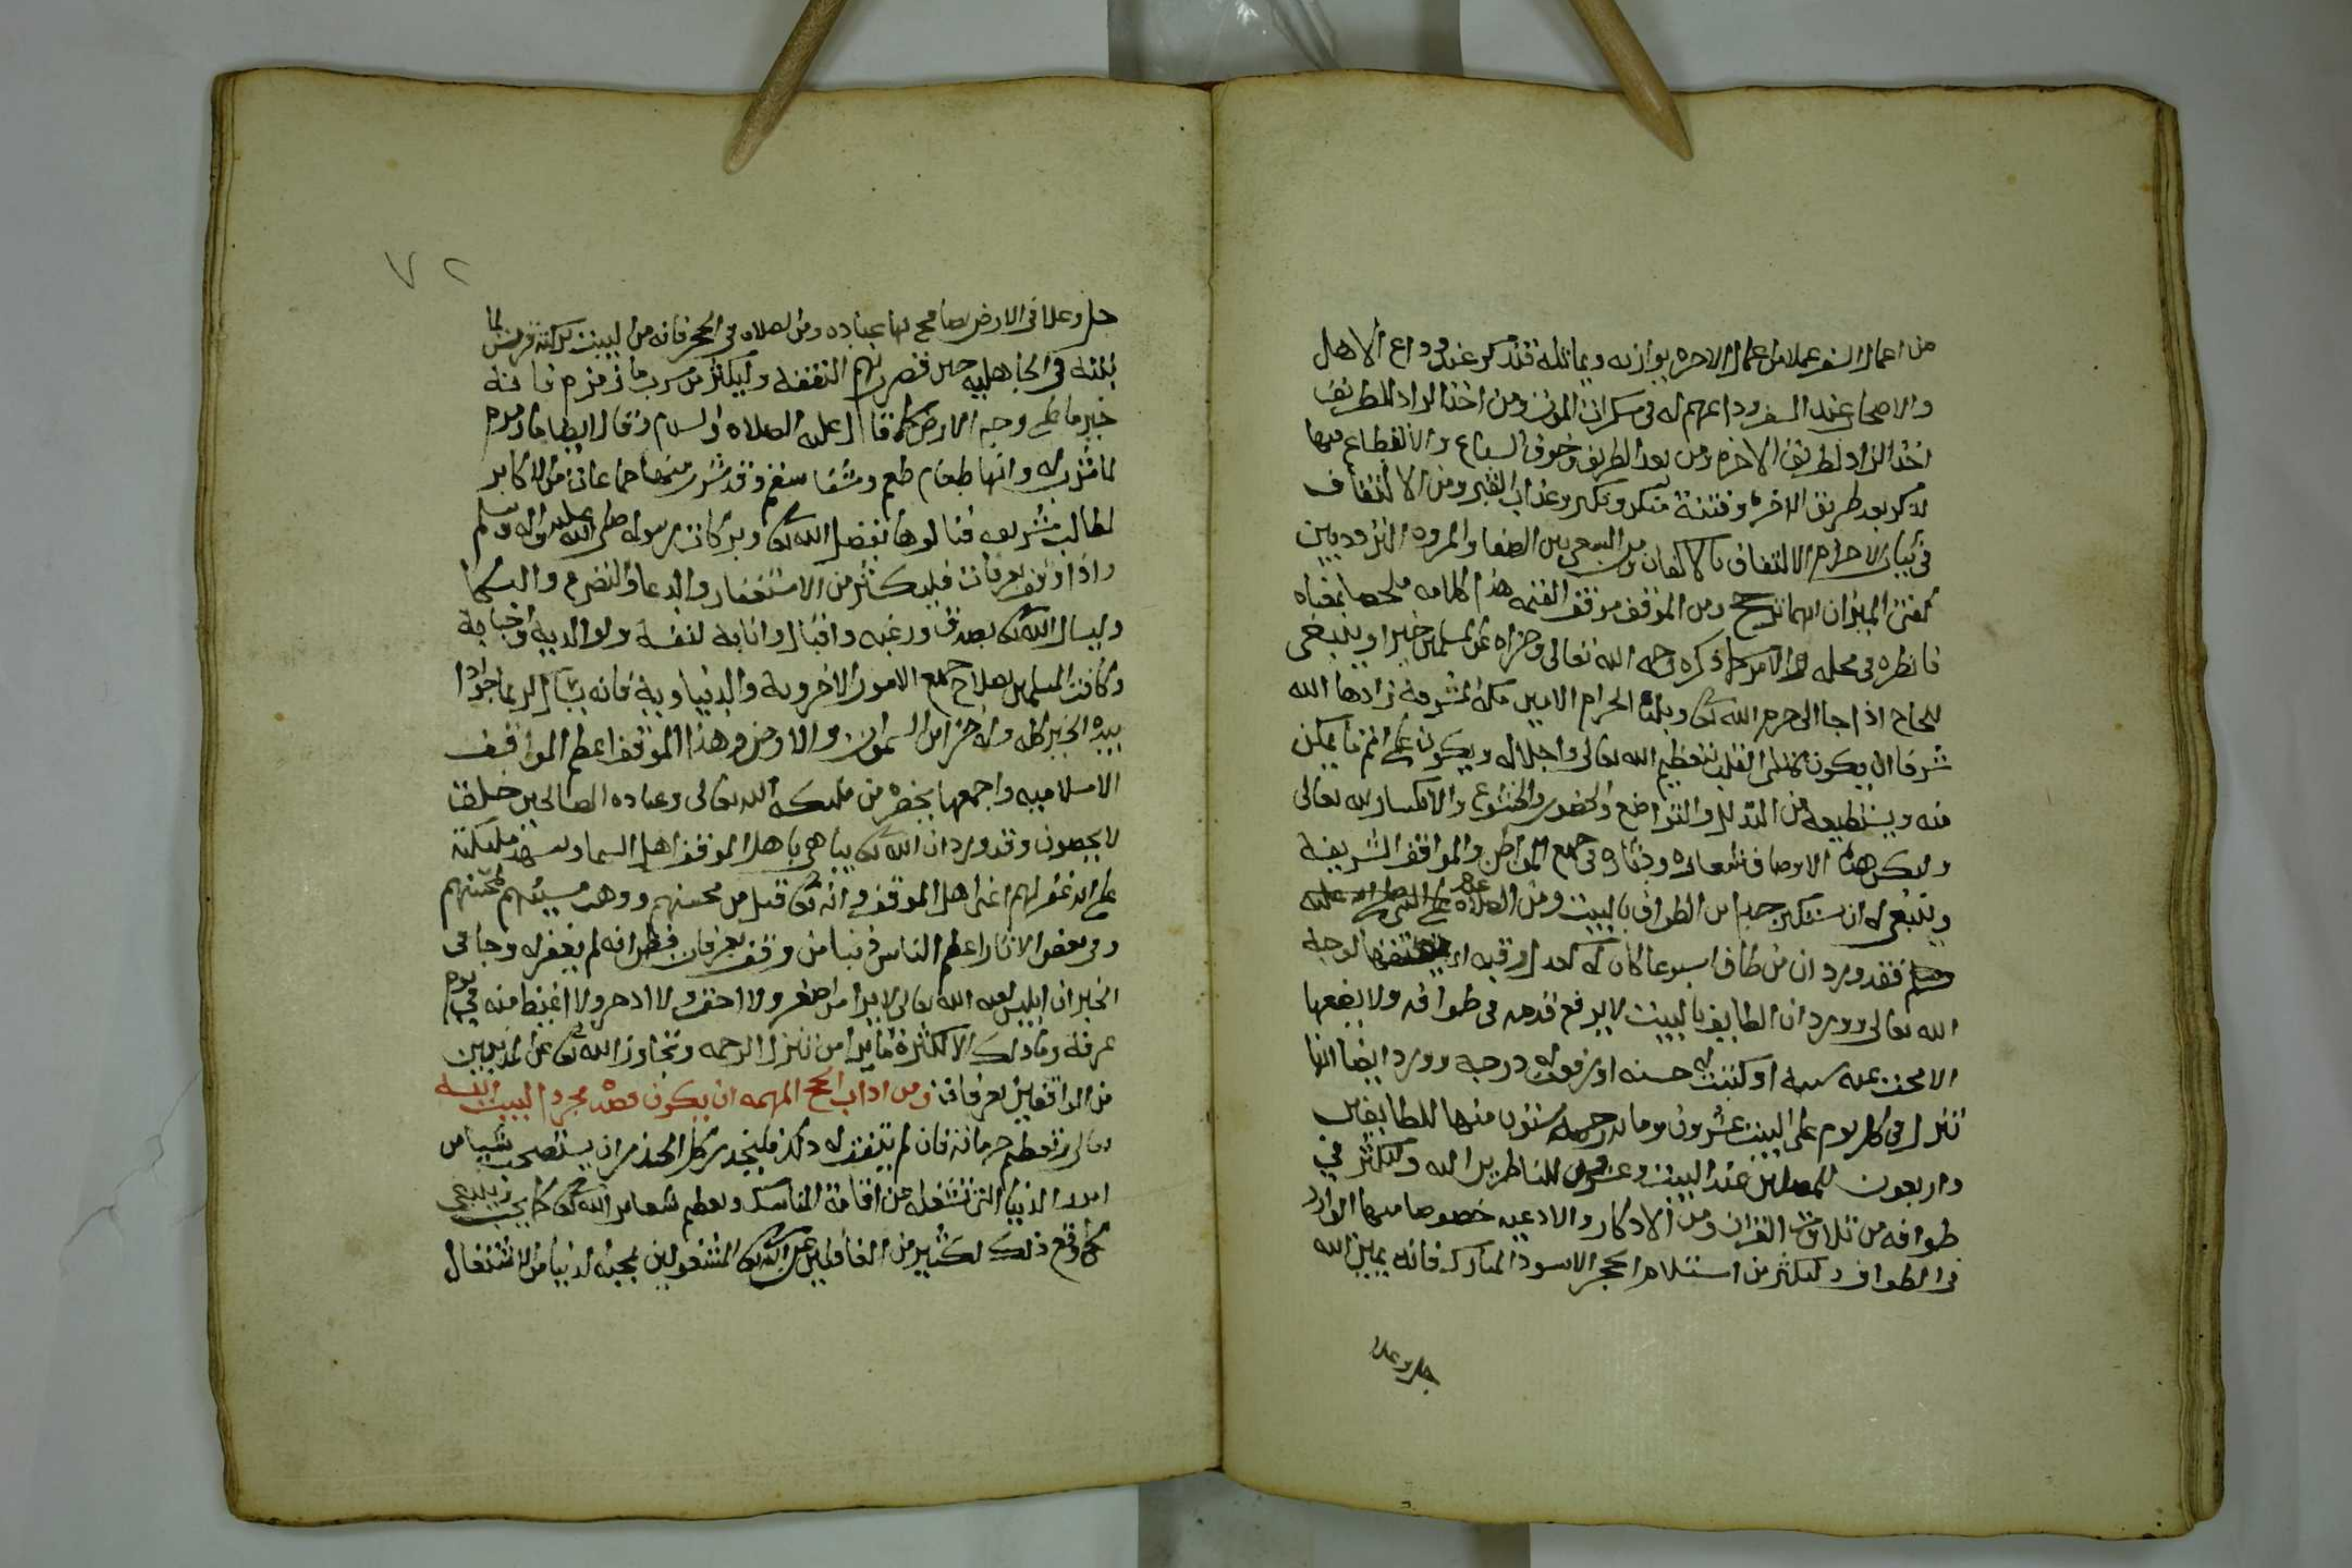 من اعمال السفر عملا من اعمال الاخره يوازنه ويماثله فتذكر عند وداع الاهل
والاصحاب عند السفر وداعهم له في سكرات الموت ومن اخذ الزاد للطريق
اخذ الزاد لطريق الاخره ومن بعد الطريق وخوف السباع والانقطاع فيها
بعد طريق الاخره وفتنة منكر ونكير وعذاب القبر ومن الالتفاف
في ثياب الاحرام الالتفاف بالاكفان ومن السعي بين الصفا والمروه التردد بين
كفتي الميزان ايهما ترجح ومن الموقف موقف القيمه هذا كلامه ملخصا بمعناه
فانظره في محله ذكره رحمه الله تعالى وجزاه عن المسلمين خيرا وينبغي
للحاج اذا جا الى حرم الله تعالى وبلده الحرام الامين مكة المشرفة زادها الله
شرفا ان يكون ممتلي القلب بتعظيم الله تعالى واجلاله ويكون على اتم ما يمكن
منه ويستطيعه من التذلل والتواضع والخضوع والخشوع والانكسار لله تعالى
وليكن هذه الاوصاف شعاره ودثاره في جميع المواطن والمواقف الشريفة
وينبغي له ان يستكثر جدا من الطواف بالبيت ومن الصلاة على النبي صلى الله عليه
وسلم فقد ورد ان من طاف اسبوعا كان له كعدل رقبه لوجه
الله تعالى وورد ان الطايف بالبيت لا يرفع قدمه في طوافه ولا يضعها
الا محيت عنه سيئة او كتبت له حسنه او رفعت له درجة وورد ايضا انها
تنزل في كل يوم على البيت عشرون وماية رحمة ستون منها للطايفين
واربعون للمصلين عند البيت وعشرون للناظرين اليه وليكثر في
طوافه من تلاوة القران ومن الاذكار والادعيه خصوصا منها الوارد
في الطواف وليكثر من استلام الحجر الاسود المبارك فانه يمين الله
جل وعلا
٧٢
جل وعلا في الارض يصافح بها عباده ومن الصلاه في الحجر فانه من البيت تركته قريش لما
بنته في الجاهليه حين قصرت بهم النفقة وليكثر من شرب ما زمزم فانه
خير ما على وجه الارض كما قال عليه الصلاه والسلام وقال ايضا ما زمزم
لما شرب له وانها طعام طعم وشفا سقم وقد شرب منها جماعات من الاكابر
لمطالب شريفه فنالوها بفضل الله تعالى وبركات رسوله صلى الله عليه واله وسلم
واذا وقف بعرفات فليكثر من الاستغفار والدعا والتضرع والبكا
وليسال الله تعالى بصدق ورغبه واقبال وانابة لنفسه ولوالديه واحبابه
وكافة المسلمين بصلاح جميع الامور الاخروية والدنياوية فانه يسال كريما جوادا
بيده الخير كله وله خزاين السموات والارض وهذا الموقف اعظم المواقف
الاسلاميه واجمعها يحضره من مليكة الله تعالى وعباده الصالحين خلق
لا يحصون وقد ورد ان الله تعالى يباهي باهل الموقف اهل السما ويشهد مليكته
على انه غفر لهم اعني اهل الموقف وانه تعالى قبل من محسنهم ووهب مسيئهم لمحسنهم
وفي بعض الاثار اعظم الناس ذنبا من وقف بعرفات فظن انه لم يغفر له وجا في
الخبر ان ابليس لعنه الله تعالى لا يرا اصغر ولا احقر ولا ادحر ولا اغيظ منه في يوم
عرفة وما ذلك الا لكثرة ما يرا من تنزل الرحمه وتجاوز الله تعالى عن المذنبين
من الواقفين بعرفات ومن اداب الحج المهمه ان يكون قصده مجردا لبيت الله
تعالى وتعظيم حرماته فان لم يتفق له ذلك فليحذر كل الحذر من ان يستصحب شيا من
امور الدنيا التي تشغله عن اقامة المناسك وتعظيم شعاير الله تعالى كما يجب وينبغي
كما وقع ذلك لكثير من الغافلين عن الله تعالى المشغولين بمحبة الدنيا من الاشتغال